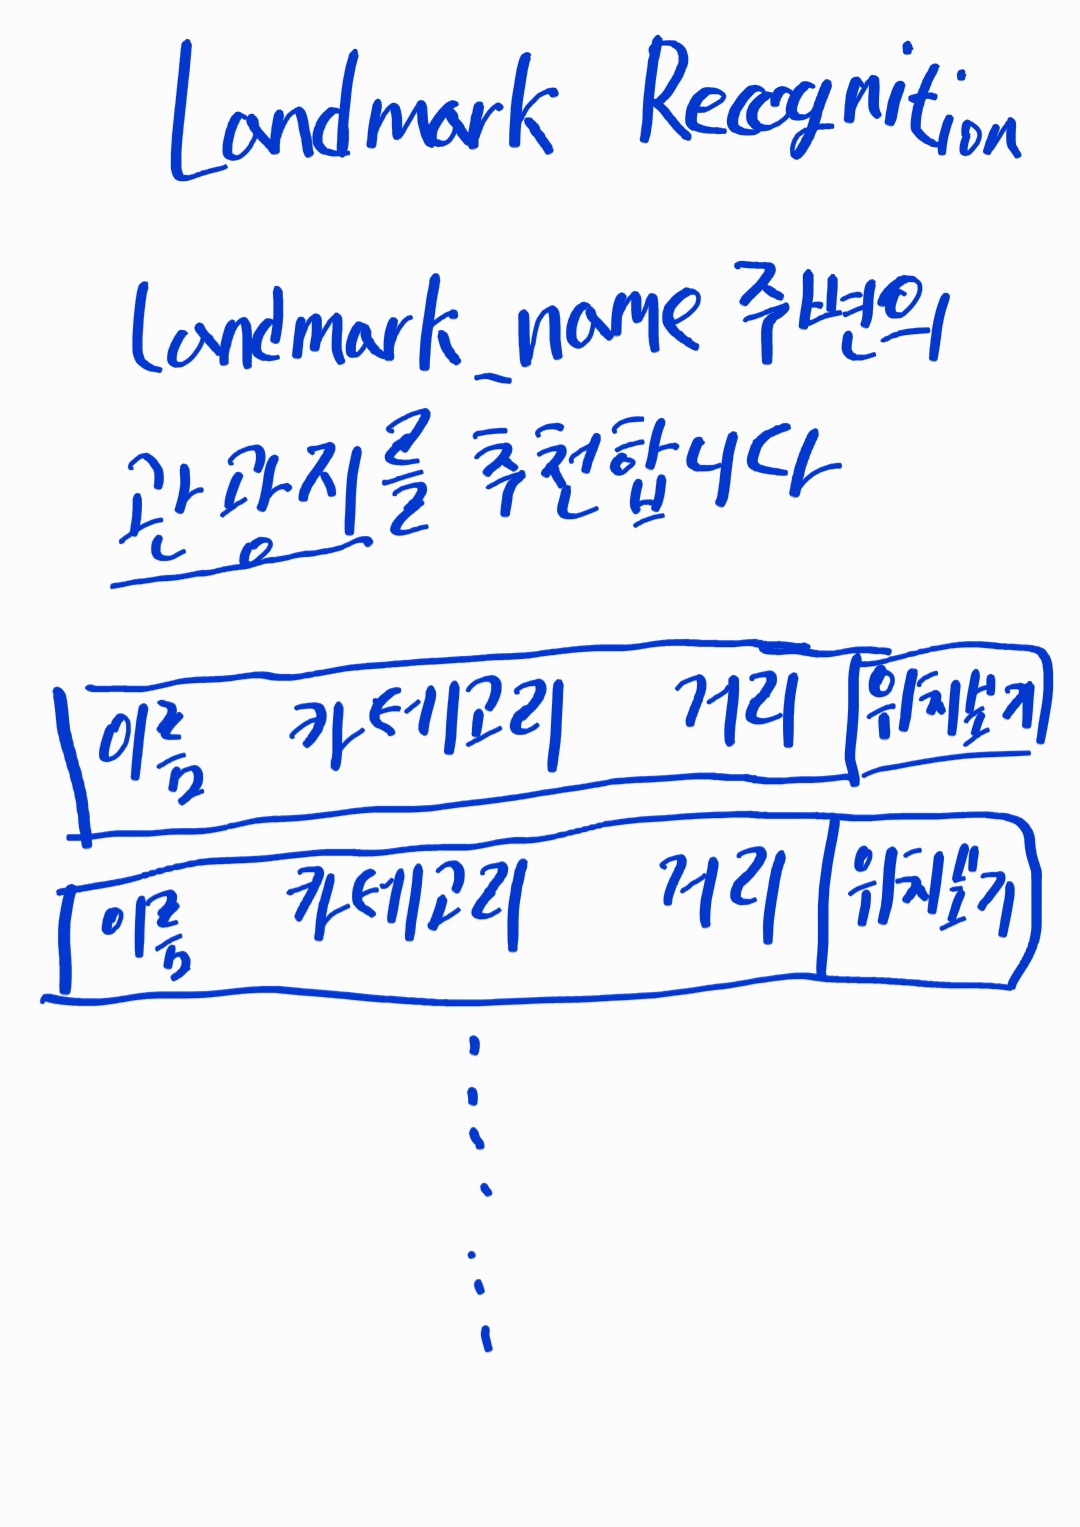 Landmark Recognition
landmark_name 주변의
관광지를 추천합니다
이름 카테고리 거리 위치보기
이름 카테고리 거리 위치보기